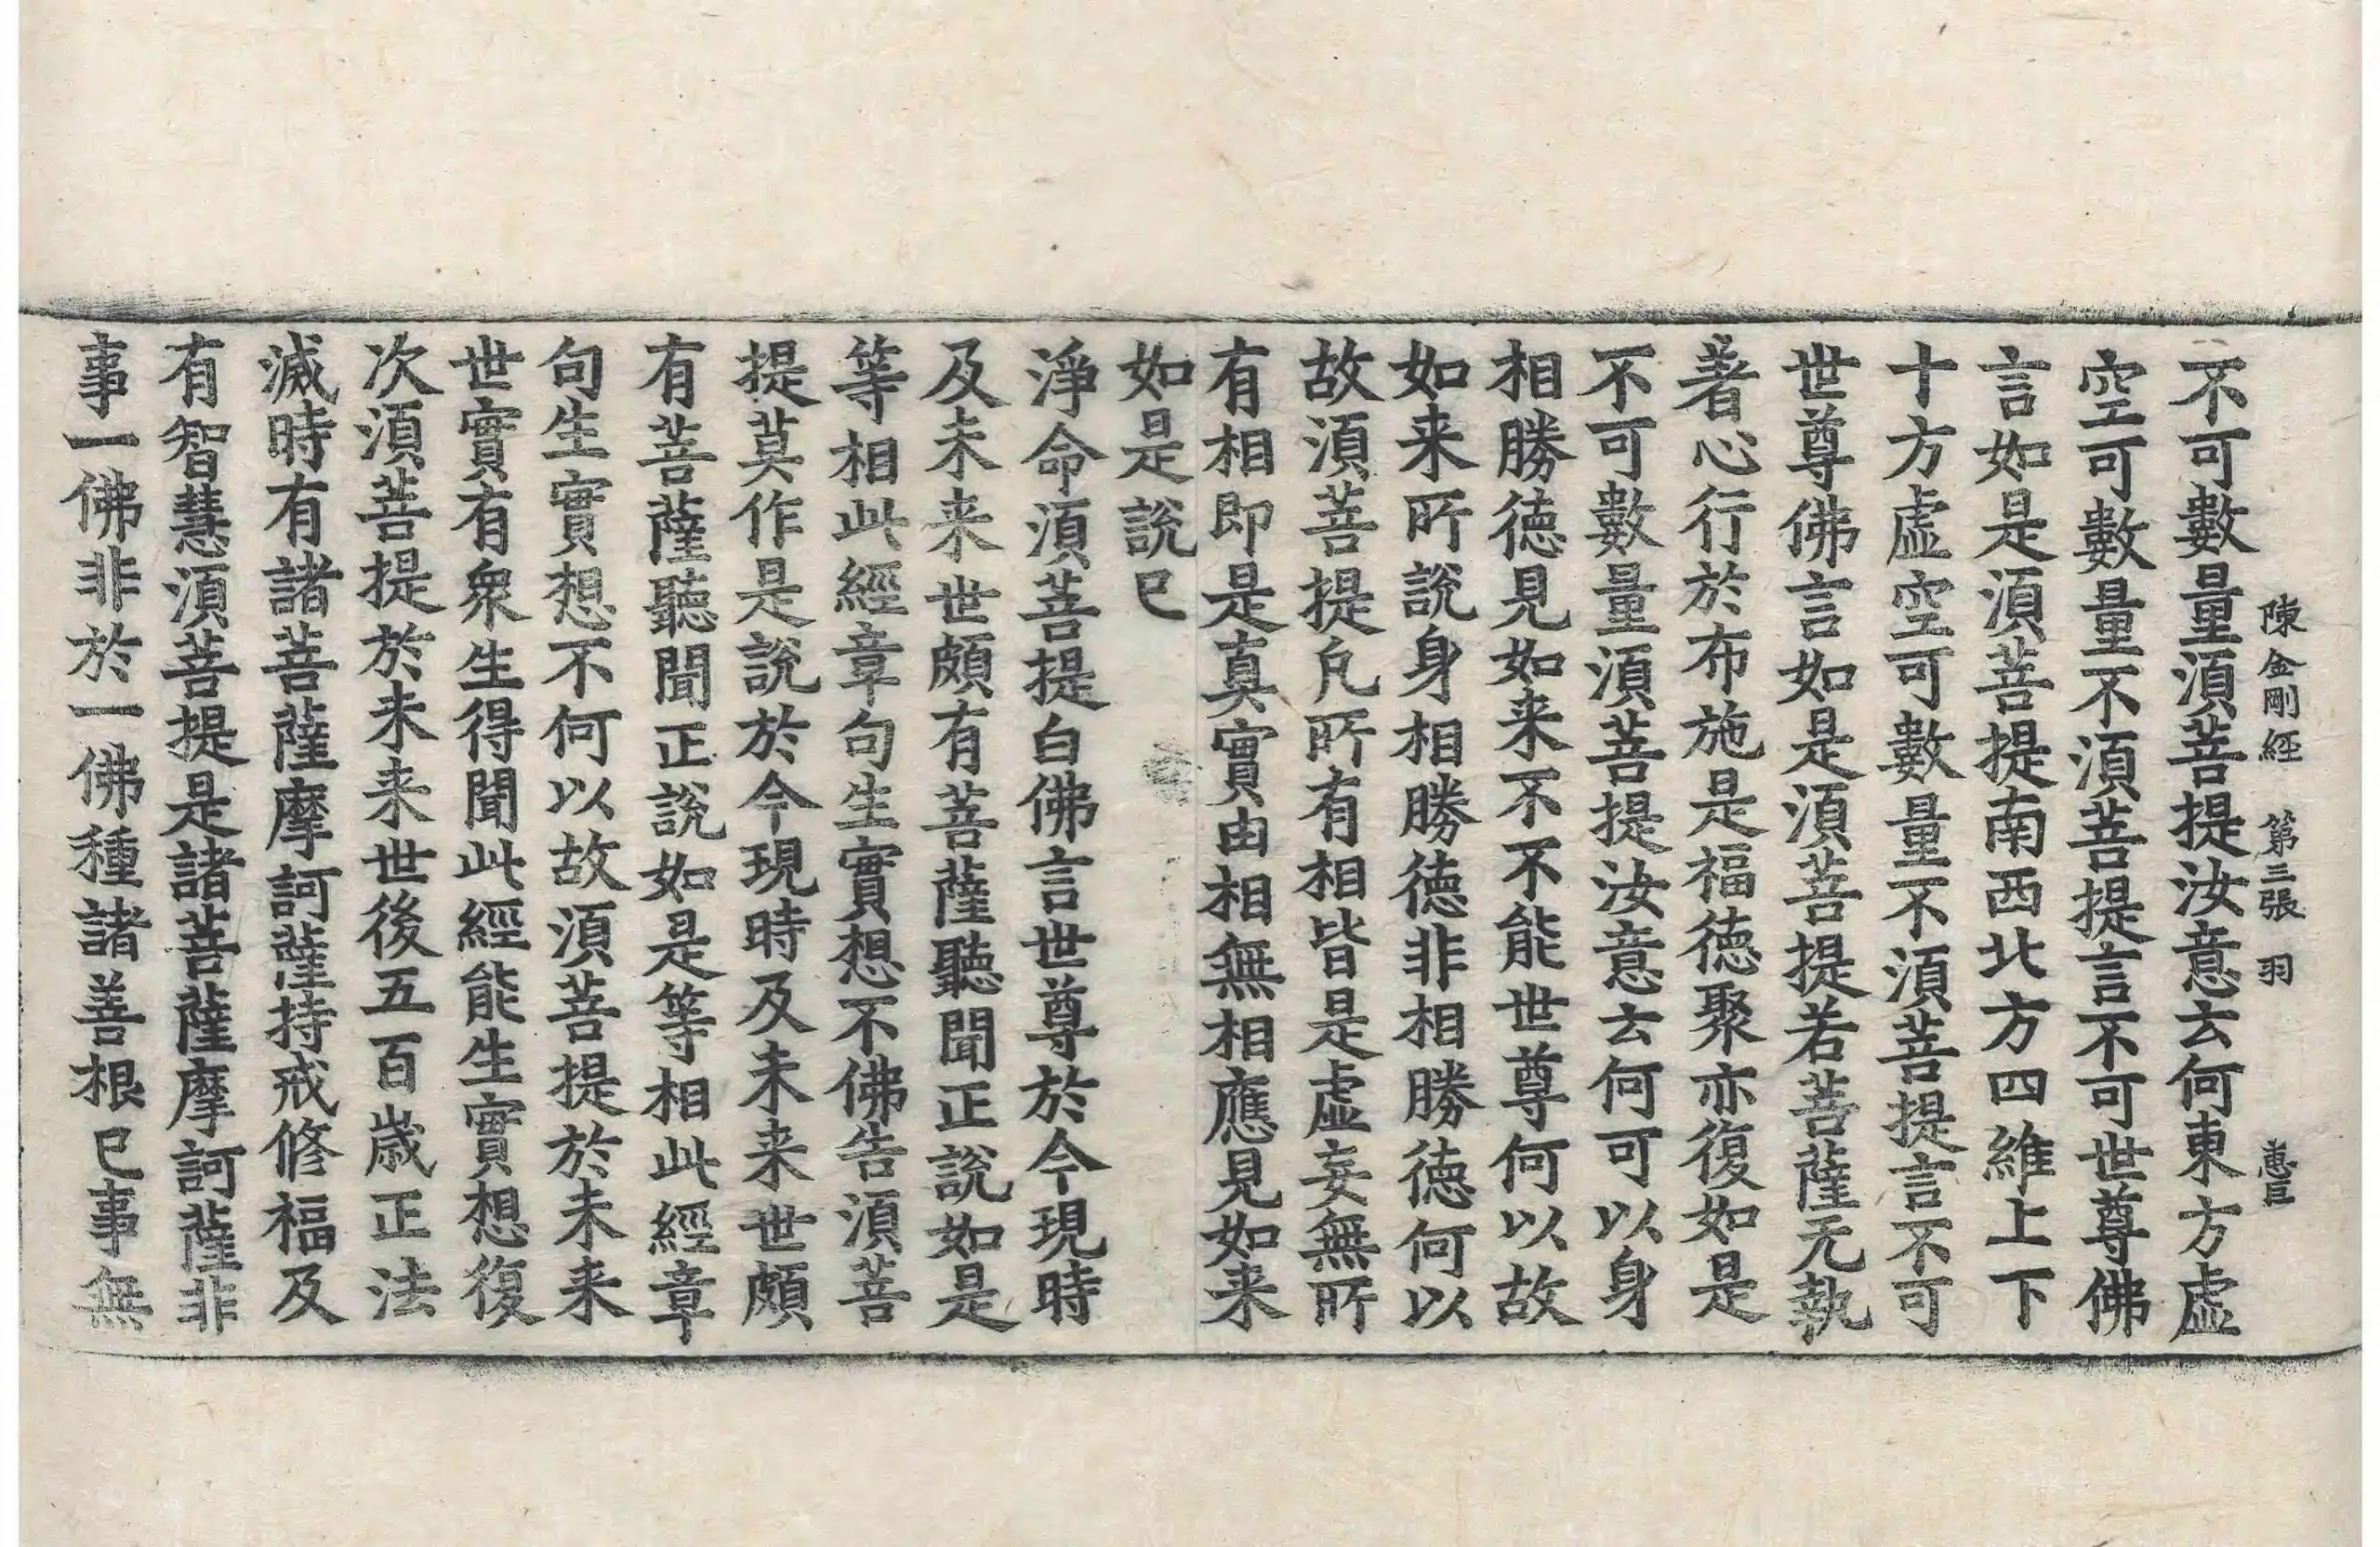 陳金剛經　第三張　羽　惠巨
不可數量須菩提汝意云何東方虛
空可數量不須菩提言不可世尊佛
言如是須菩提南西北方四維上下
十方虛空可數量不須菩提言不可
世尊佛言如是須菩提若菩薩无執
著心行於布施是福德聚亦復如是
不可數量須菩提汝意云何可以身
相勝德見如来不不能世尊何以故
如来所說身相勝德非相勝德何以
故須菩提凡所有相皆是虛妄無所
有相即是真實由相無相應見如来
如是說已
淨命須菩提白佛言世尊於今現時
及未来世頗有菩薩聽聞正說如是
等相此經章句生實想不佛告須菩
提莫作是說於今現時及未来世頗
有菩薩聽聞正說如是等相此經章
句生實想不何以故須菩提於未来
世實有衆生得聞此經能生實想復
次須菩提於未来世後五百歲正法
滅時有諸菩薩摩訶薩持戒修福及
有智慧須菩提是諸菩薩摩訶薩非
事一佛非於一佛種諸善根已事無